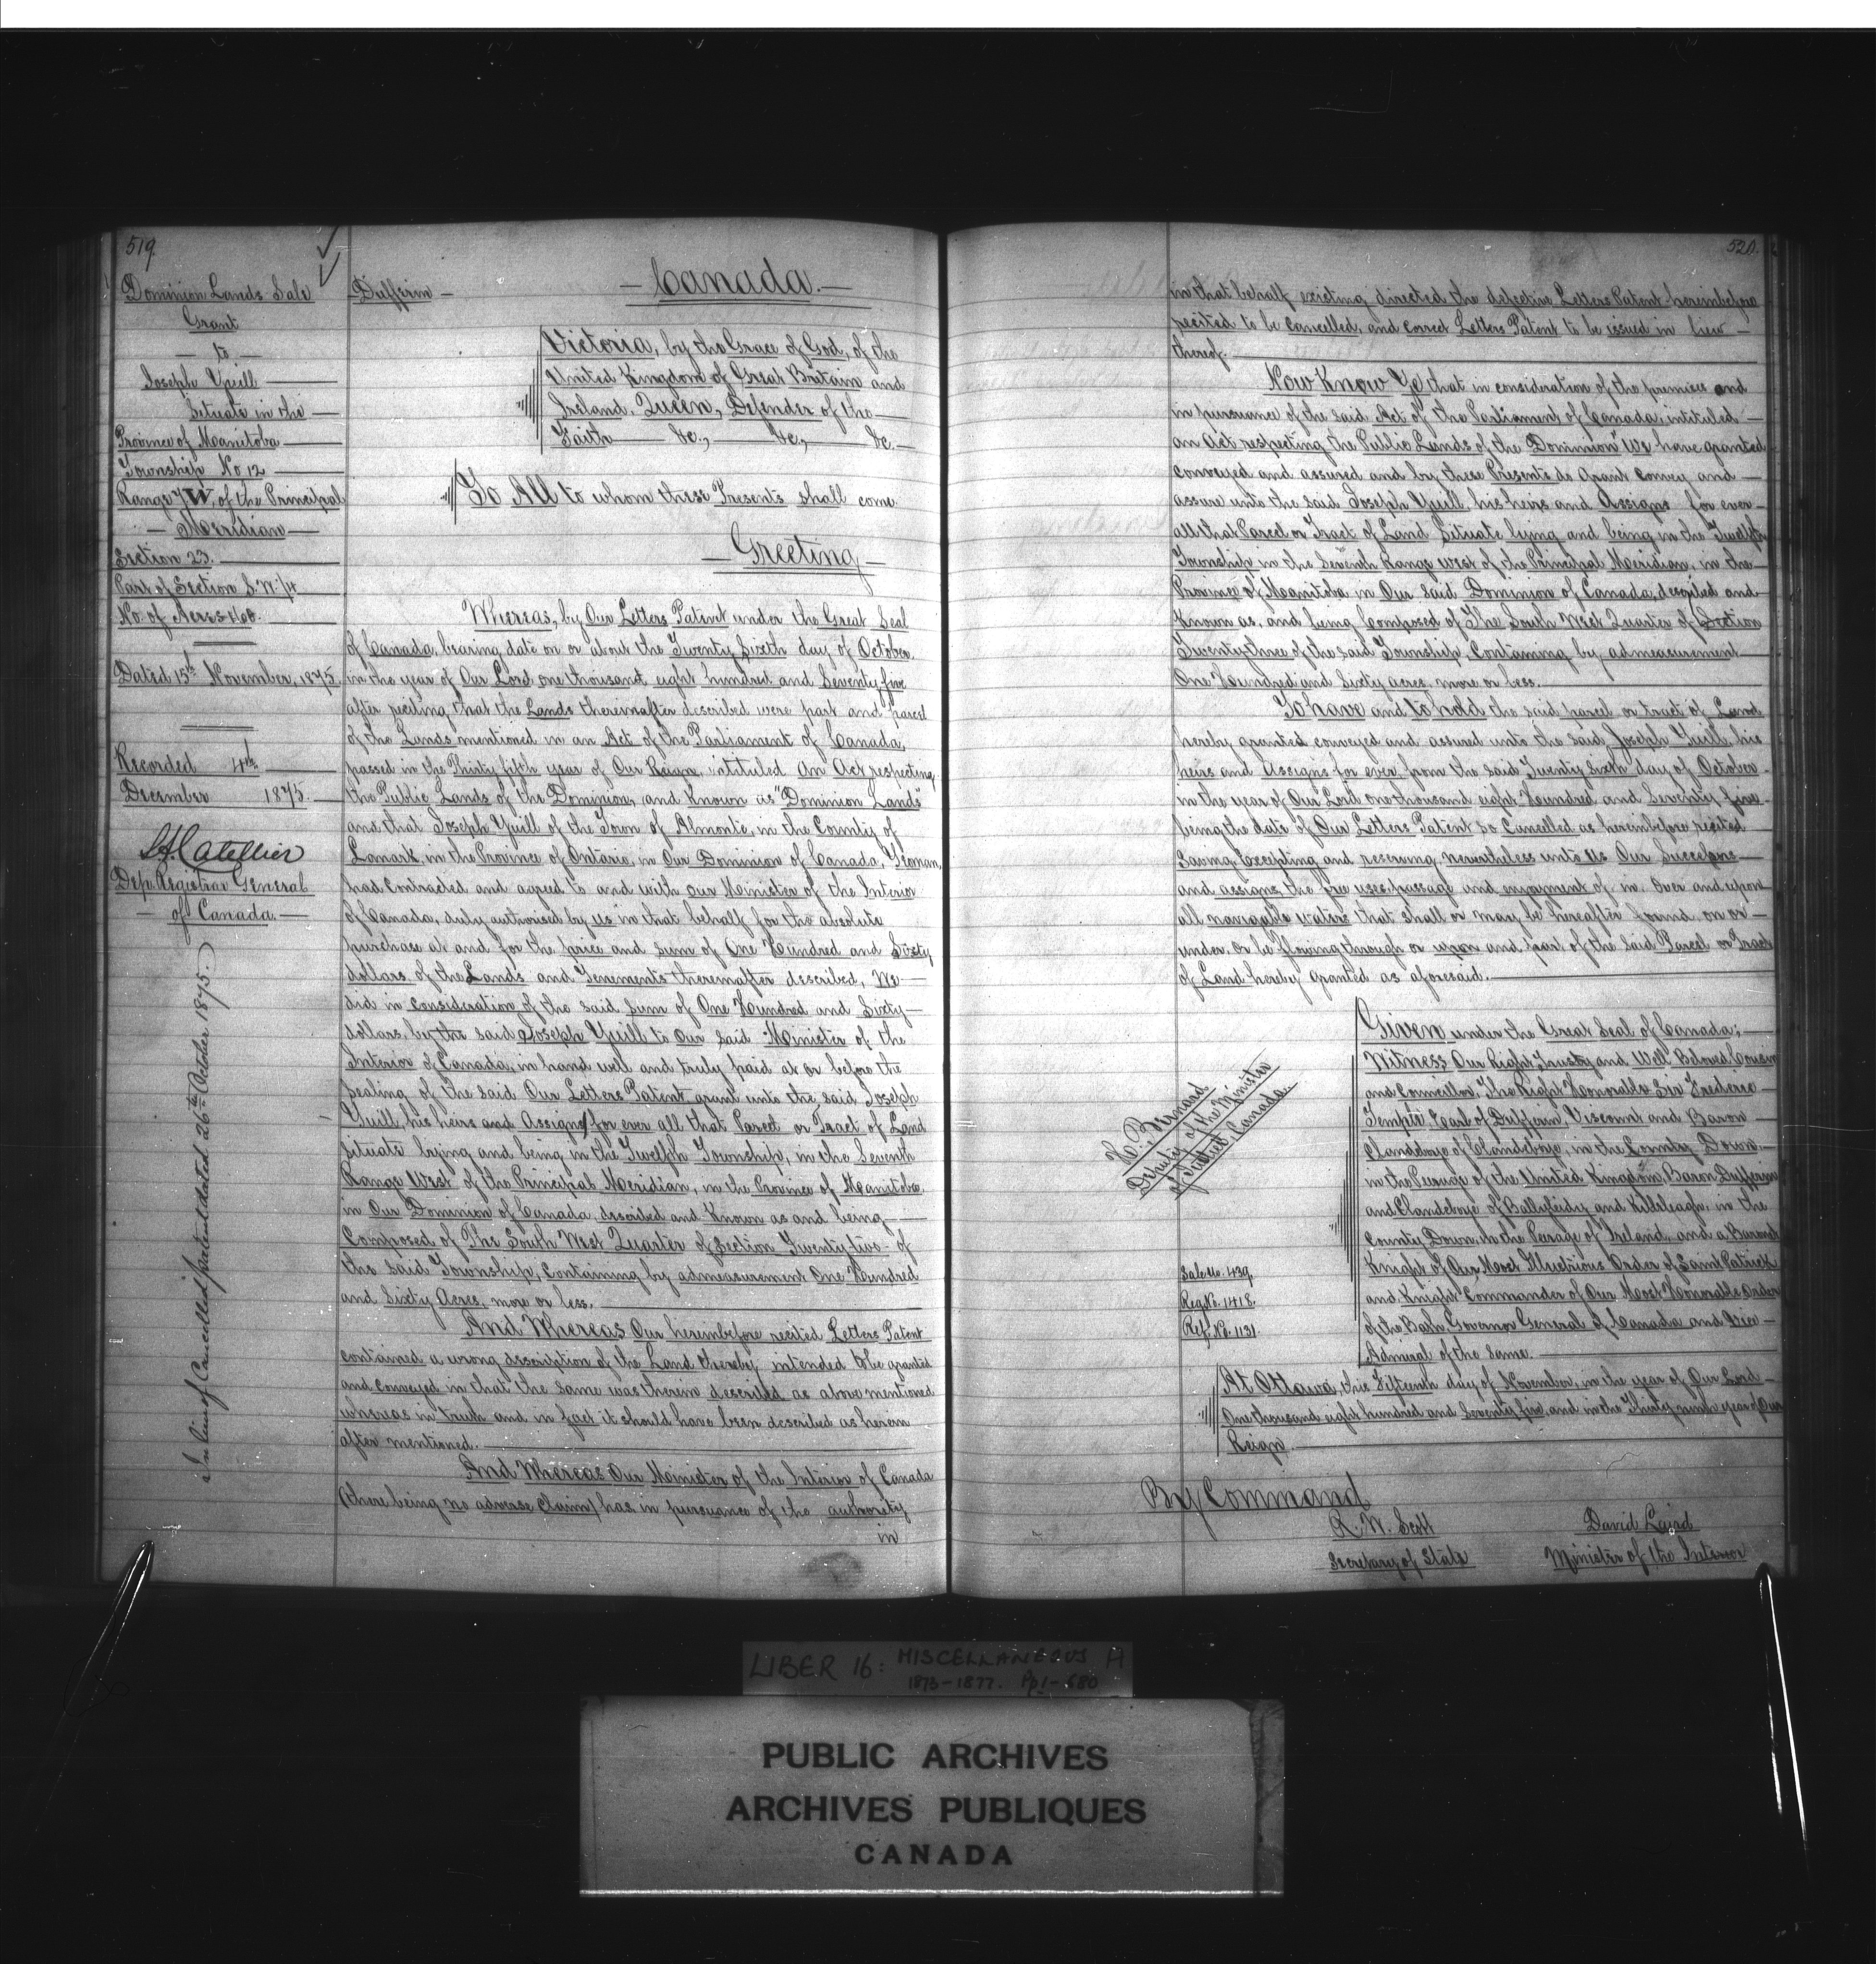 519.
Dominion Lands Sale
Grant
— to —
Joseph Yuill
Situate in the
Province of Manitoba
Township No 12
Range 7 W. of the Principal
— Meridian —
Section 23.
Part of Section S.W. 1/4
No. of Acres 160.
Dated 15th November, 1875.
Recorded 4th
December 1875.
L.A. Catellier
Dep. Registrar General
— of Canada. —
In lieu of Cancelled patent dated 26th October 1875.
Dufferin —
— Canada. —
Victoria, by the Grace of God, of the
United Kingdom of Great Britain and
Ireland, Queen, Defender of the
Faith &c., &c., &c.
To All to whom these Presents shall come
— Greeting —
Whereas, by Our Letters Patent under the Great Seal
of Canada, bearing date on or about the Twenty Sixth day of October
in the year of Our Lord one thousand eight hundred and Seventy five
after reciting that the Lands thereinafter described were part and parcel
of the Lands mentioned in an Act of the Parliament of Canada,
passed in the Thirty fifth year of Our Reign intituled An Act respecting
the Public Lands of the Dominion, and Known as "Dominion Lands"
and that Joseph Yuill of the Town of Almonte, in the County of
Lanark, in the Province of Ontario, in Our Dominion of Canada, Yeoman,
had contracted and agreed to and with our Minister of the Interior
of Canada, duly authorised by us in that behalf for the absolute
purchase at and for the price and sum of One Hundred and Sixty
dollars of the Lands and Tenements thereinafter described, We
did in consideration of the said sum of One Hundred and Sixty
dollars, by the said Joseph Yuill to Our said Minister of the
Interior of Canada, in hand well and truly paid at or before the
sealing of the said Our Letters Patent grant unto the said Joseph
Yuill, his heirs and Assigns for ever all that Parcel or Tract of Land
situate lying and being in the Twelfth Township, in the Seventh
Range West of the Principal Meridian, in the Province of Manitoba,
in Our Dominion of Canada, described and Known as and being
Composed of The South West Quarter of Section Twenty two of
the said Township, Containing by admeasurement One Hundred
and Sixty Acres, more or less.
And Whereas Our hereinbefore recited Letters Patent
contained a wrong description of the Land thereby intended to be granted
and conveyed in that the same was therein described as above mentioned
whereas in truth and in fact it should have been described as herein
after mentioned.
And Whereas Our Minister of the Interior of Canada
(there being no adverse Claim) has in pursuance of the authority
in
520.
in that behalf existing directed the defective Letters Patent hereinbefore
recited to be cancelled, and correct Letters Patent to be issued in lieu
thereof.
Now Know Ye that in consideration of the premises and
in pursuance of the said Act of the Parliament of Canada, intituled
an Act respecting the Public Lands of the Dominion" We have granted
conveyed and assured and by these Presents do Grant convey and
assure unto the said Joseph Yuill, his heirs and Assigns for ever
all that Parcel or Tract of Land Situate lying and being in the Twelfth
Township in the Seventh Range west of the Principal Meridian, in the
Province of Manitoba in Our said Dominion of Canada, described and
Known as, and being Composed of The South West Quarter of Section
Twenty three of the said Township, Containing by admeasurement
One Hundred and Sixty acres, more or less.
To have and to hold the said parcel or tract of Land
hereby granted conveyed and assured unto the said Joseph Yuill, his
heirs and Assigns for ever, from the said Twenty Sixth day of October
in the year of Our Lord one thousand eight Hundred and Seventy five
being the date of Our Letters Patent so Cancelled as hereinbefore recited
Saving, Excepting and reserving, nevertheless unto Us Our Successors
and assigns the free uses, passage and enjoyment of, in, Over and upon
all navigable waters that shall or may be hereafter found on or
under, or be flowing through or upon and part of the said Parcel or Tract
of Land hereby granted as aforesaid.
H. Bernard
Deputy of the Minister
of Justice, Canada.
Given under the Great Seal of Canada;
Witness Our Right Trusty and Well Beloved Cousin
and Councillor, The Right Honorable Sir Frederic
Temple, Earl of Dufferin, Viscount and Baron
Clandeboye of Clandeboye, in the County Down
in the Peerage of the United Kingdom, Baron Dufferin
and Clandeboye of Ballyleidy and Killeleagh, in the
County Down, in the Peerage of Ireland, and a Baronet
Knight of Our Most Illustrious Order of Saint Patrick
and Knight Commander of Our Most Honorable Order
of the Bath, Governor General of Canada and Vice
Admiral of the same.
Sale No. 439.
Reg. No. 1418.
Ref. No. 1131.
At Ottawa, this Fifteenth day of November, in the year of Our Lord
One thousand eight hundred and Seventy five and in the Thirty ninth year of Our
Reign.
By Command
R. W. Scott
Secretary of State
David Laird
Minister of the Interior
LIBER 16: MISCELLANEOUS A
1873-1877. Pp 1-680
PUBLIC ARCHIVES
ARCHIVES PUBLIQUES
CANADA